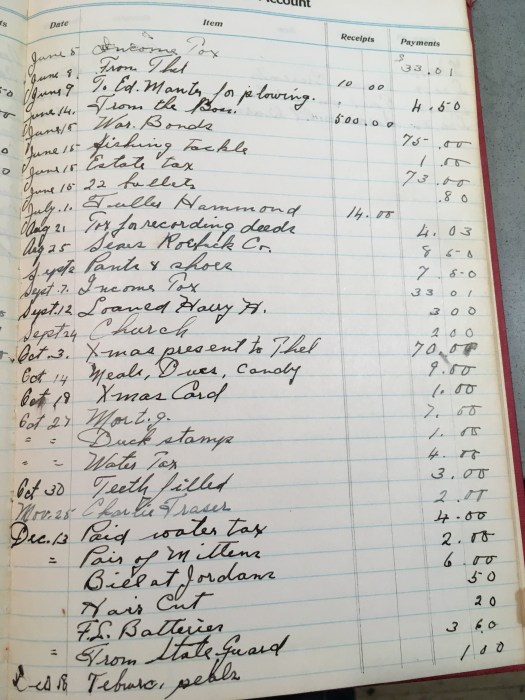 Account
Date Item Receipts Payments
June 5 Income Tax 33.01
June 8. From Thel 10 00
June 9 To Ed. Mante for plowing. 4.50
June 14. From the Boss. 500.00
June 15 War. Bonds 75.00
June 15 fishing tackle 1.00
June 15 Estate tax 73.00
June 15 22 bullets .80
July. 1. Fuller Hammond 14.00
Aug 21 Tax for recording deeds 4.03
Aug 25 Sears Roebuck Co. 8 50
Sept 2 Pants & shoes 7.50
Sept. 7. Income Tax 33 01
Sept. 12 Loaned Harry H. 3 00
Sept 24 Church 2 00
Oct. 3. Xmas present to Thel 70.00
Oct 14 Meals, Dues, candy 9.00
Oct 18 Xmas Card 1.00
Oct 27 Mort.g. 7.00
" " Duck stamps 1.00
" " Water Tax 4.00
Oct 30 Teeth filled 3.00
Nov. 25 Charlie Fraser 2.00
Dec. 13 Paid water tax 4.00
" Pair of Mittens 2.00
Bill at Jordans 6.00
Hair Cut 50
F.L. Batteries 20
" From State Guard 3 60
18 seals 1 00